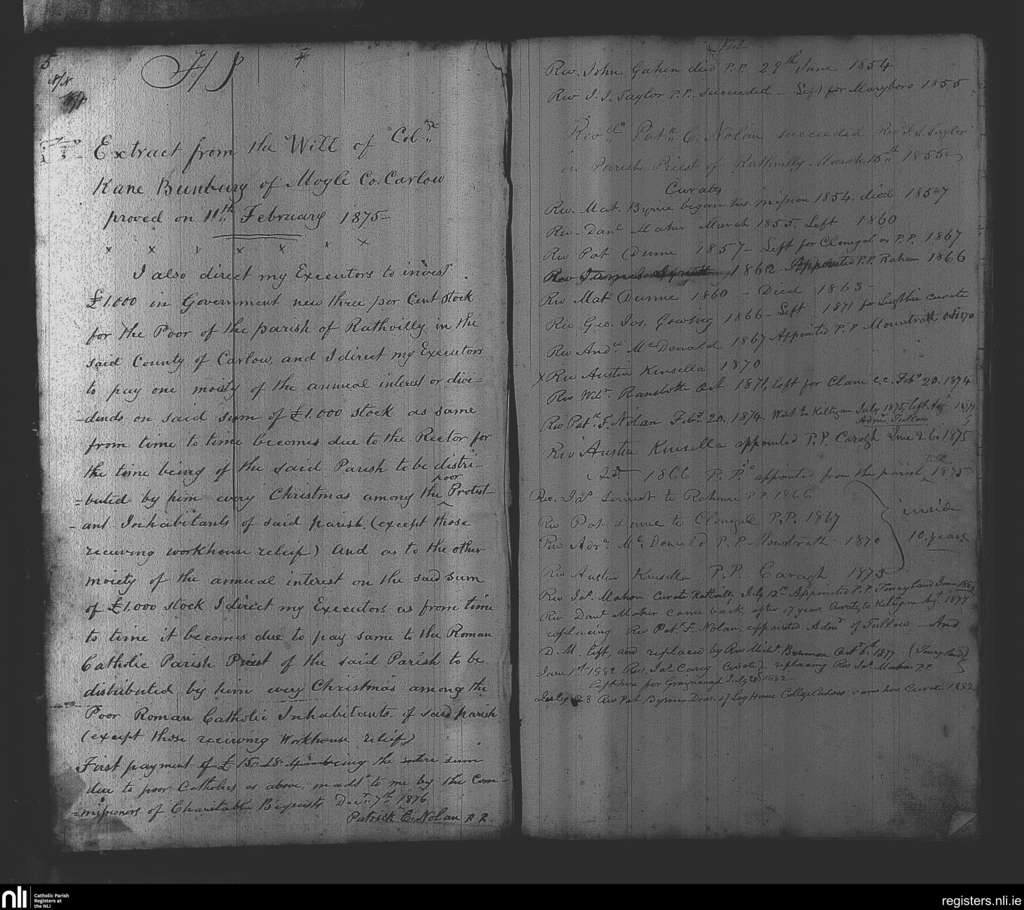 Extract from the Will of Colnl
Kane Bunbury of Moyle Co. Carlow
proved on 11th February 1875 -
x x x x x x x
I also direct my Executors to invest
£1.000 in Government new three per Cent Stock
for the Poor of the parish of Rathvilly in the
said County of Carlow, and I direct my Executors
to pay one moiety of the annual interest or divi-
-dends on said sum of £1.000 stock as same
from time to time becomes due to the Rector for
the time being of the said Parish to be distri-
-buted by him every Christmas among the poor Protest-
-ant Inhabitants of said parish (except those
receiving workhouse relief) And as to the other
moiety of the annual interest on the said sum
of £1.000 stock I direct my Executors as from time
to time it becomes due to pay same to the Roman
Catholic Parish Priest of the said Parish to be
distributed by him every Christmas among the
Poor Roman Catholic Inhabitants of said parish
(except those receiving Workhouse relief)
First payment of £15. being the entire sum
due to poor Catholics as above, made to me by the Com-
-missioners of Charitable Bequests Decr 7th 1876
Patrick C. Nolan P.P.
Rev. John Gahen died P.P. 29th June 1854
Rev J. J. Taylor P.P. succeeded - Left for Maryboro 1855
Patk C. Nolan succeeded Rev J. J. Taylor
as Parish Priest of Rathvilly March 15th 1855
Curates
Rev. Mat. Byrne began his mission 1854. died 1857
Rev. Danl Maher March 1855. Left 1860
Rev Pat Dunne 1857 - Left for Clonegal as P.P. 1867
1862 Appointed P.P. Rahan 1866
Rev Mat Dunne 1860 - Died 1863 -
Rev Geo. Jos. Gowing 1866 - Left 1871 for curate
Rev Andw McDonald 1867 Appointed P.P Mountrath 1870
x Rev Austin Kinsella 1870
Rev Wm. Oct 1871, left for Clane C.C. Feby 20. 1874
Rev Patk F. Nolan Feby. 20. 1874. Went to Kiltegan July 1875, left Augt 1877
Admr Tullow
Rev Austin Kinsella appointed P.P. Caragh June 26. 1875
1866 P.P.s appointed from the parish 1875
Rev. Jas to Rahan P.P. 1866
Rev Pat Dunne to Clonegal P.P. 1867
Rev Andw McDonald P.P. Mountrath 1870
inside
10 years
Rev Austin Kinsella P.P. Caragh 1875
Rev Jas. Mahon Curate Rathvilly July Appointed P.P.
Rev Danl Maher came back, after 17 years Curate, to Kiltegan Augt 1877
replacing Rev Pat. F. Nolan, appointed Admr of Tullow - And
D. M. left, and replaced by Rev Michl Brennan Oct 6th 1877
June 1st 1882 Rev. Jas Carey Curate replacing Rev Jas Mahon P.P.
Left here for July 1882
Rev Pat Byrne Dean of Lay House College Carlow came here Curate 1882
nli
Catholic Parish
Registers at
the NLI
registers.nli.ie